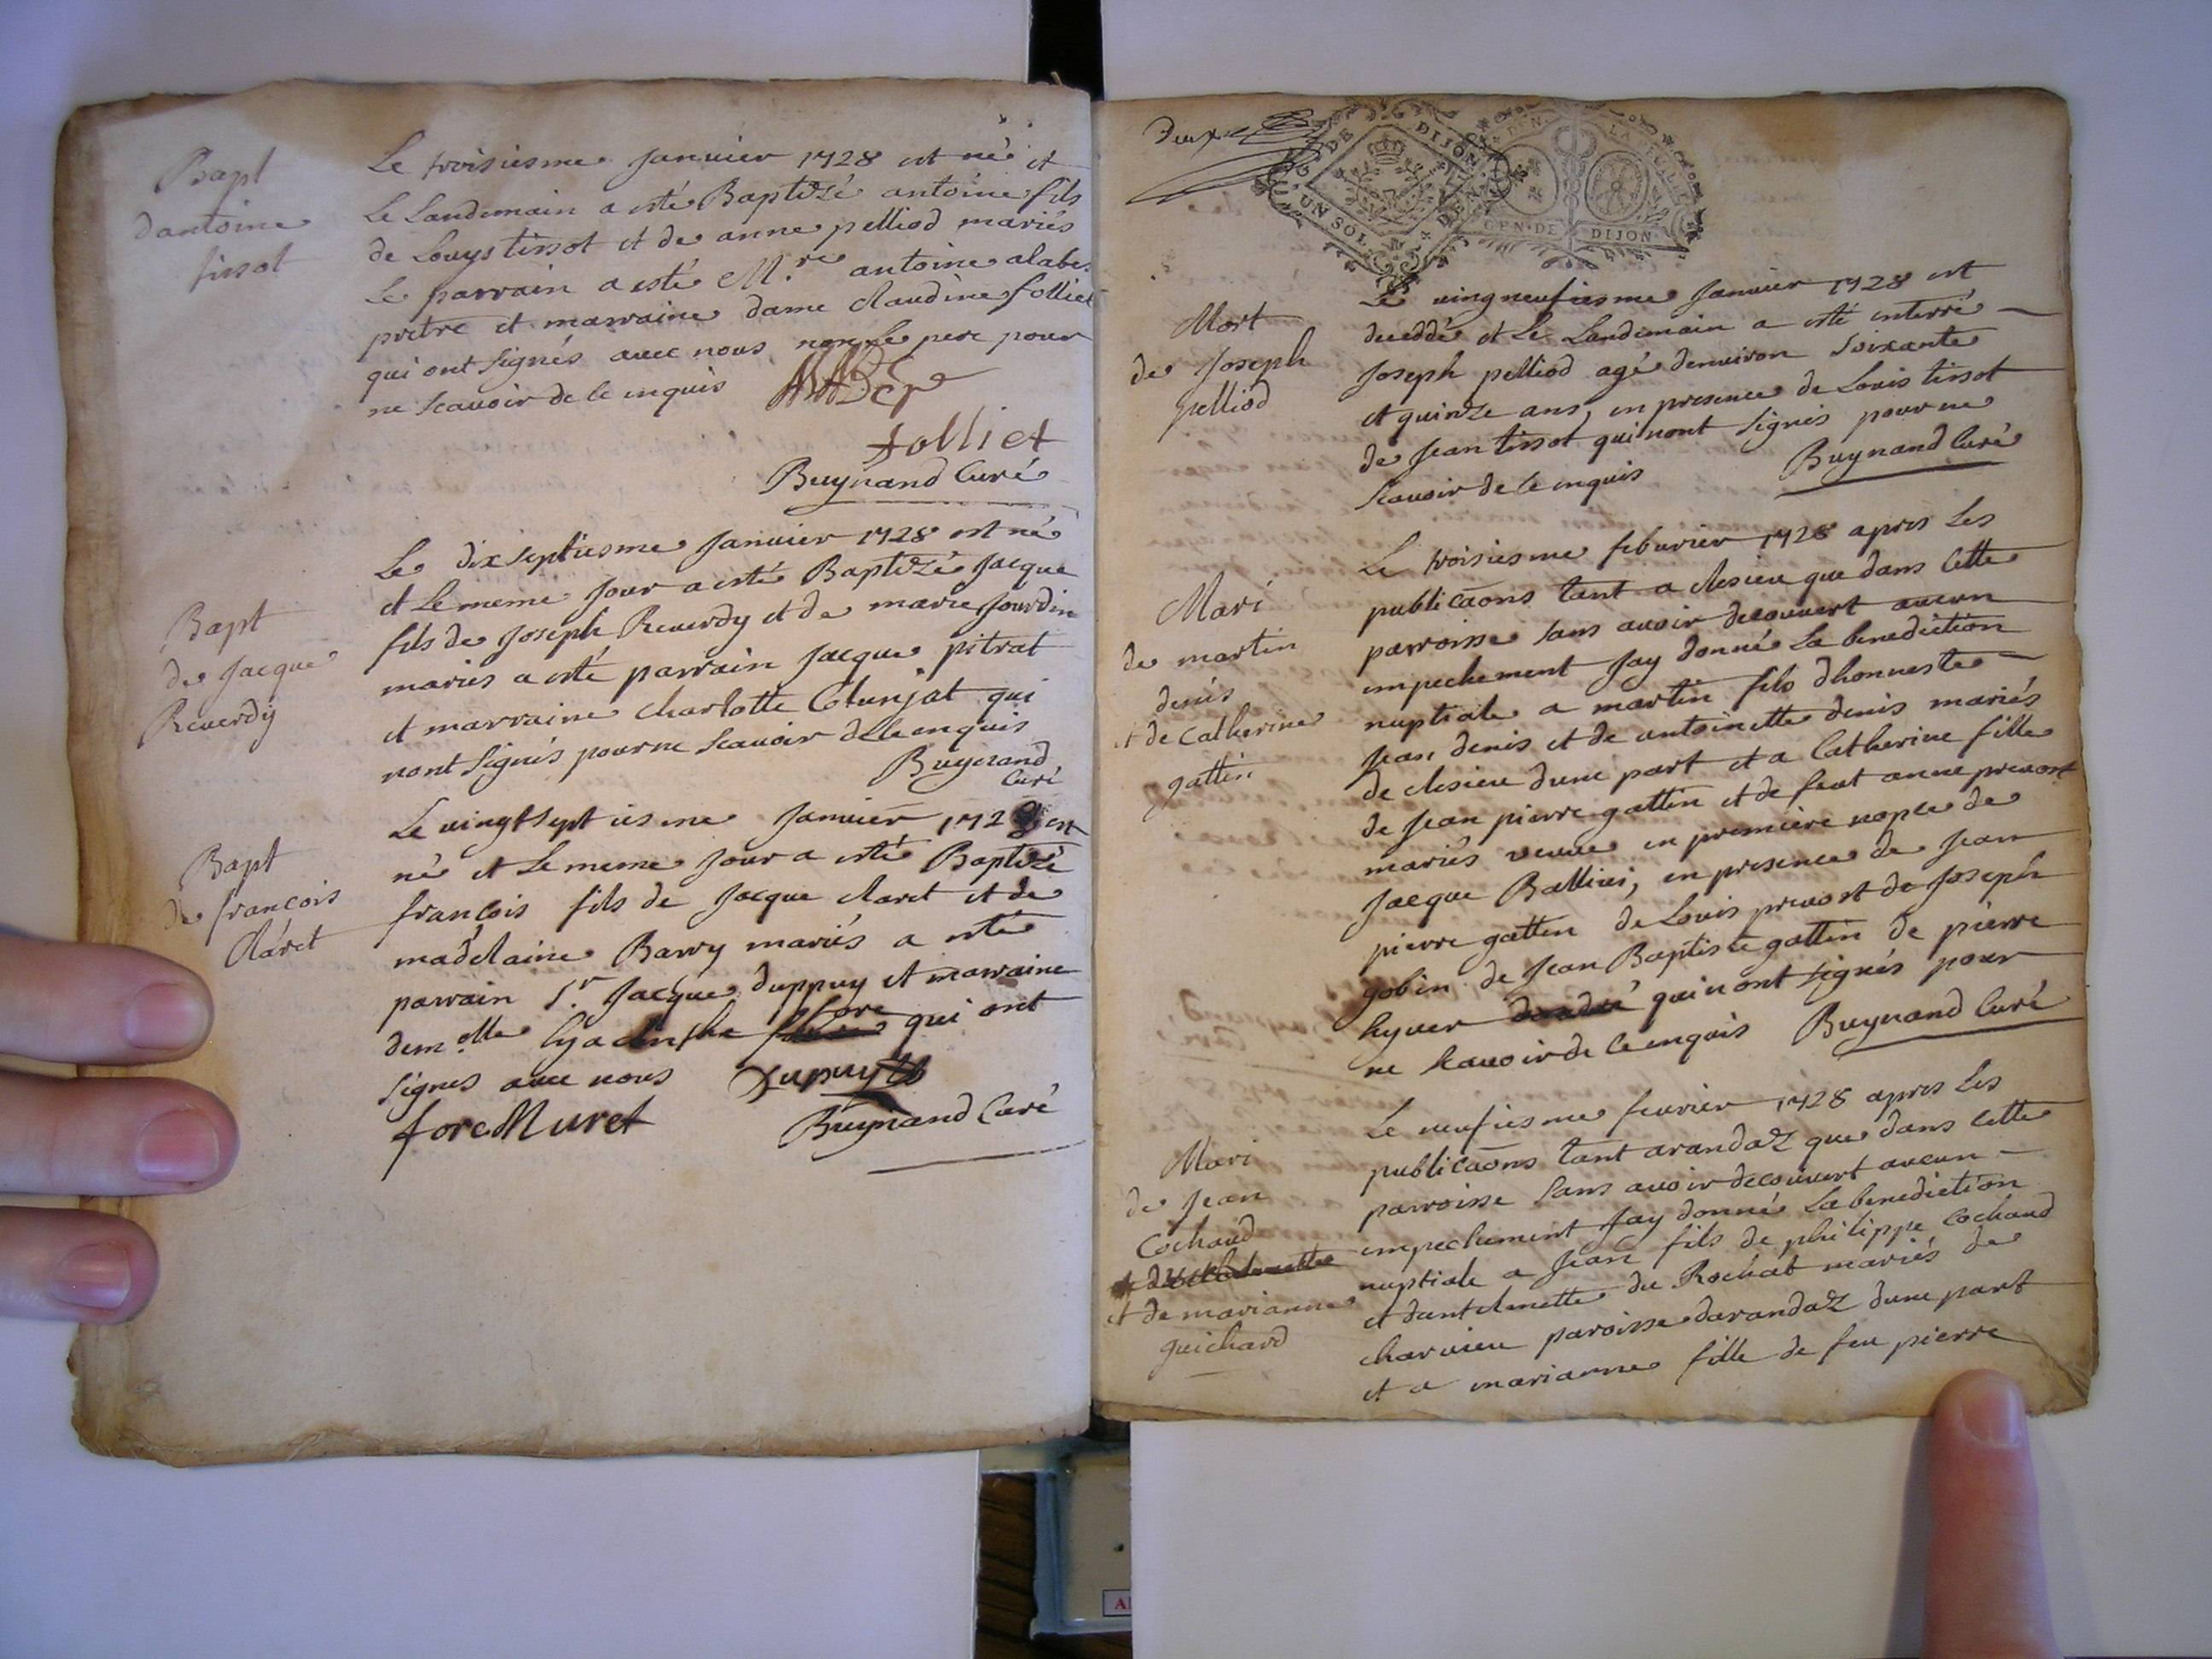 Bapt
dantoine
tissot
Le troisiesme Januier 1728 est né et
le Landemain a esté Baptizé antoine fils
de Louys tissot et de anne pelliod mariés
Le parrain a esté M.re antoine alabe
pretre et marraine dame claudine folliet
qui ont signés auec nous non le pere pour
ne scauoir de ce enquis
folliet
Buynand Curé
Bapt
de Jacque
Reuerdy
Le dixseptiesme Januier 1728 est né
et Le meme Jour a esté Baptizé Jacque
fils de Joseph Reuerdy et de marie Jourdin
mariés a esté parrain Jacque pitrat
et marraine charlotte Cotunjat qui
nont signés pour ne scauoir de ce enquis
Buynand
Curé
Bapt
de francois
claret
Le vingtseptiesme Januier 1728 est
né et Le meme Jour a esté Baptizé
françois fils de Jacque claret et de
madelaine Barry mariés a esté
parrain S.r Jacque duppuy et marraine
dem.elle hyacinthe fore qui ont
signes auec nous
Dupuy
fore Muret
Buynand Curé
Deux
DE DIJON
UN SOL
GEN·DE DIJON
Mort
de Joseph
pelliod
Le vingneufiesme Januier 1728 est
deceddé et Le Landemain a esté enterré
Joseph pelliod agé denuiron soixante
et quinze ans, en presence de Louis tissot
de Jean tissot qui nont signés pour ne
scauoir de ce enquis
Buynand Curé
Mari
de martin
denis
et de Catherine
gattin
Le troisiesme feburier 1728 apres Les
publicaõns tant a clesieu que dans cette
parroisse sans auoir decouuert aucun
empechement Jay donné La benediction
nuptiale a martin fils dhonneste
Jean denis et de antoinette denis mariés
de clesieu dune part et a Catherine fille
de Jean pierre gattin et de feut anne preuost
mariés veuue en premiere nopce de
Jacque Ballivi, en presence de Jean
pierre gatten de Louis preuost de Joseph
gobin de Jean Baptiste gattin de pierre
hyuer qui nont signés pour
ne scauoir de ce enquis
Buynand Curé
Mari
de Jean
Cochaud
et de marianne
guichard
Le neufiesme feurier 1728 apres Les
publicaõns tant arandaz que dans cette
parroisse sans auoir decouuert aucun
empechement Jay donné La benediction
nuptiale a Jean fils de philippe Cochaud
et dantelmette du Rochat mariés de
charuieu paroisse darandaz dune part
et a marianne fille de feu pierre